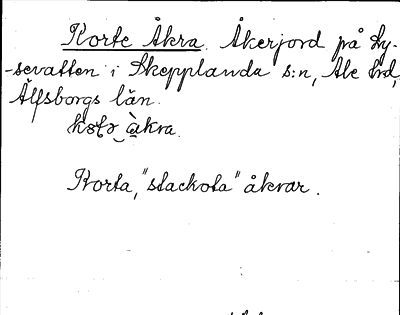 Korte Åkra. Åkerjord på Ly-
-sevatten i Skepplanda s:n, Ale hrd,
Älfsborgs län.
àkra.
Korta, "stackota" åkrar.